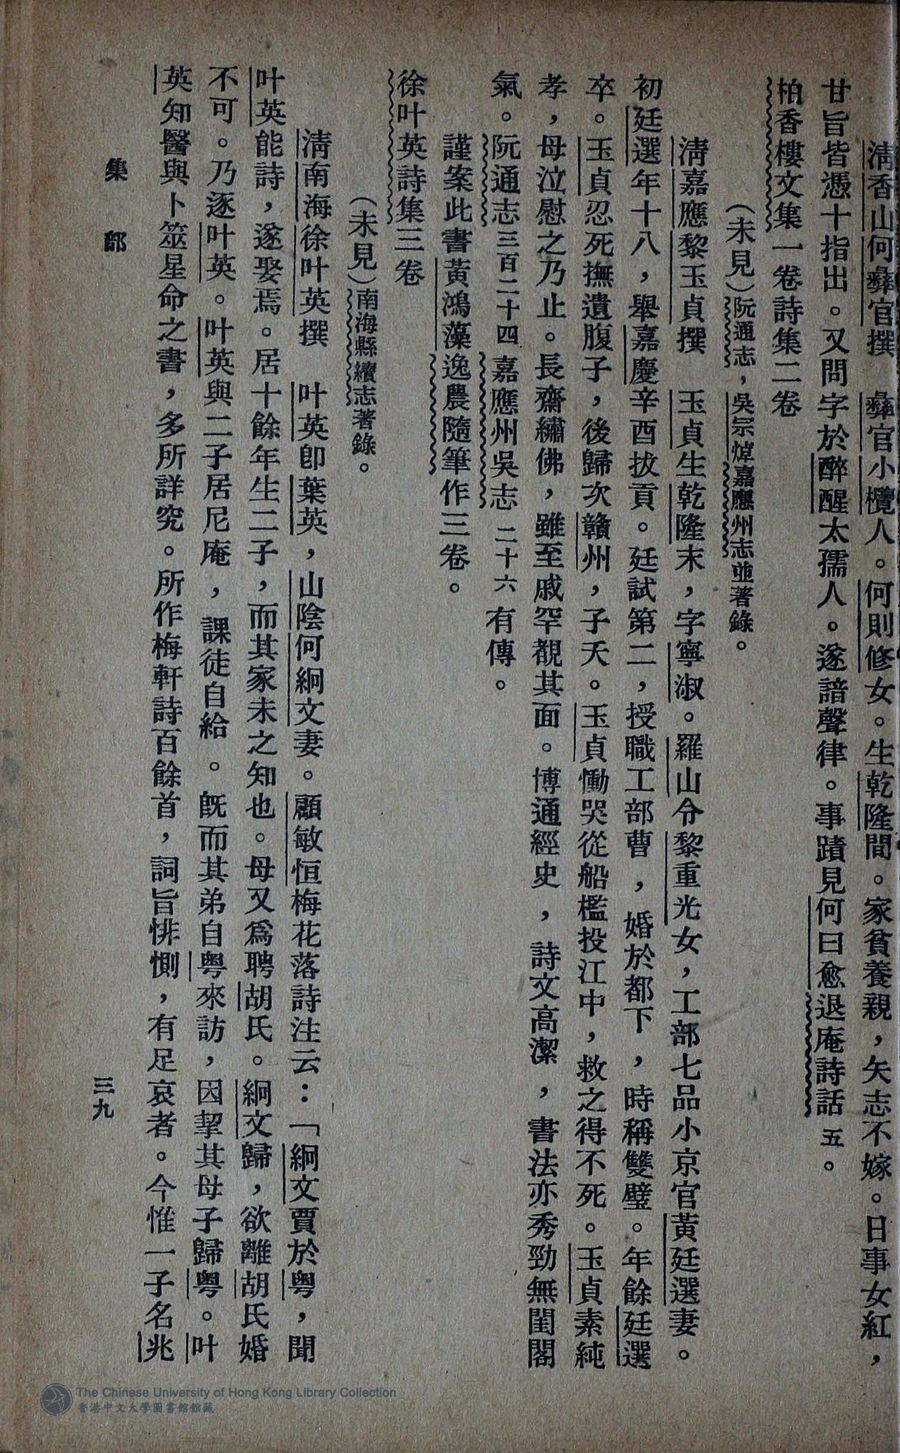 清香山何彝官撰　彝官小欖人。何則修女。生乾隆間。家貧養親，矢志不嫁。日事女紅，
甘旨皆憑十指出。又問字於醉醒太孺人。遂諳聲律。事蹟見何曰愈退庵詩話五。
柏香樓文集一卷詩集二卷
（未見）阮通志，吳宗焯嘉應州志並著錄。
清嘉應黎玉貞撰　玉貞生乾隆末，字寧淑。羅山令黎重光女，工部七品小京官黃廷選妻。
初廷選年十八，舉嘉慶辛酉拔貢。廷試第二，授職工部曹，婚於都下，時稱雙璧。年餘廷選
卒。玉貞忍死撫遺腹子，後歸次贛州，子夭。玉貞慟哭從船檻投江中，救之得不死。玉貞素純
孝，母泣慰之乃止。長齋繡佛，雖至戚罕覩其面。博通經史，詩文高潔，書法亦秀勁無閨閣
氣。阮通志三百二十四嘉應州吳志二十六有傳。
謹案此書黃鴻藻逸農隨筆作三卷。
徐叶英詩集三卷
（未見）南海縣續志著錄。
清南海徐叶英撰　叶英卽葉英，山陰何絅文妻。顧敏恒梅花落詩注云：「絅文賈於粵，聞
叶英能詩，遂娶焉。居十餘年生二子，而其家未之知也。母又爲聘胡氏。絅文歸，欲離胡氏婚
不可。乃逐叶英。叶英與二子居尼庵，課徒自給。旣而其弟自粵來訪，因挈其母子歸粵。叶
英知醫與卜筮星命之書，多所詳究。所作梅軒詩百餘首，詞旨悱惻，有足哀者。今惟一子名兆
集部
三九
The Chinese University of Hong Kong Library Collection
香港中文大學圖書館館藏